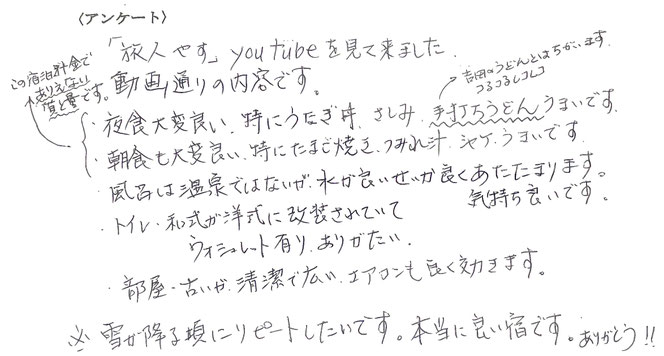 〈アンケート〉
「旅人やす」youtubeを見て来ました
動画通りの内容です。
この宿泊料金で
ありえない
質と量です。
吉田のうどんとはちがいます。
つるつるしコシコシ
・夜食大変良い、特にうなぎ丼、さしみ、手打ちうどんうまいです。
・朝食も大変良い、特にたまご焼き、つみれ汁、シャケ、うまいです。
・風呂は温泉ではないが、水が良いせいか良くあたたまります。
気持ち良いです。
・トイレ・和式が洋式に改装されていて
ウォシュレット有り、ありがたい。
・部屋・古いが、清潔で広い、エアコンも良く効きます。
※雪が降る頃にリピートしたいです。本当に良い宿です。ありがとう!!